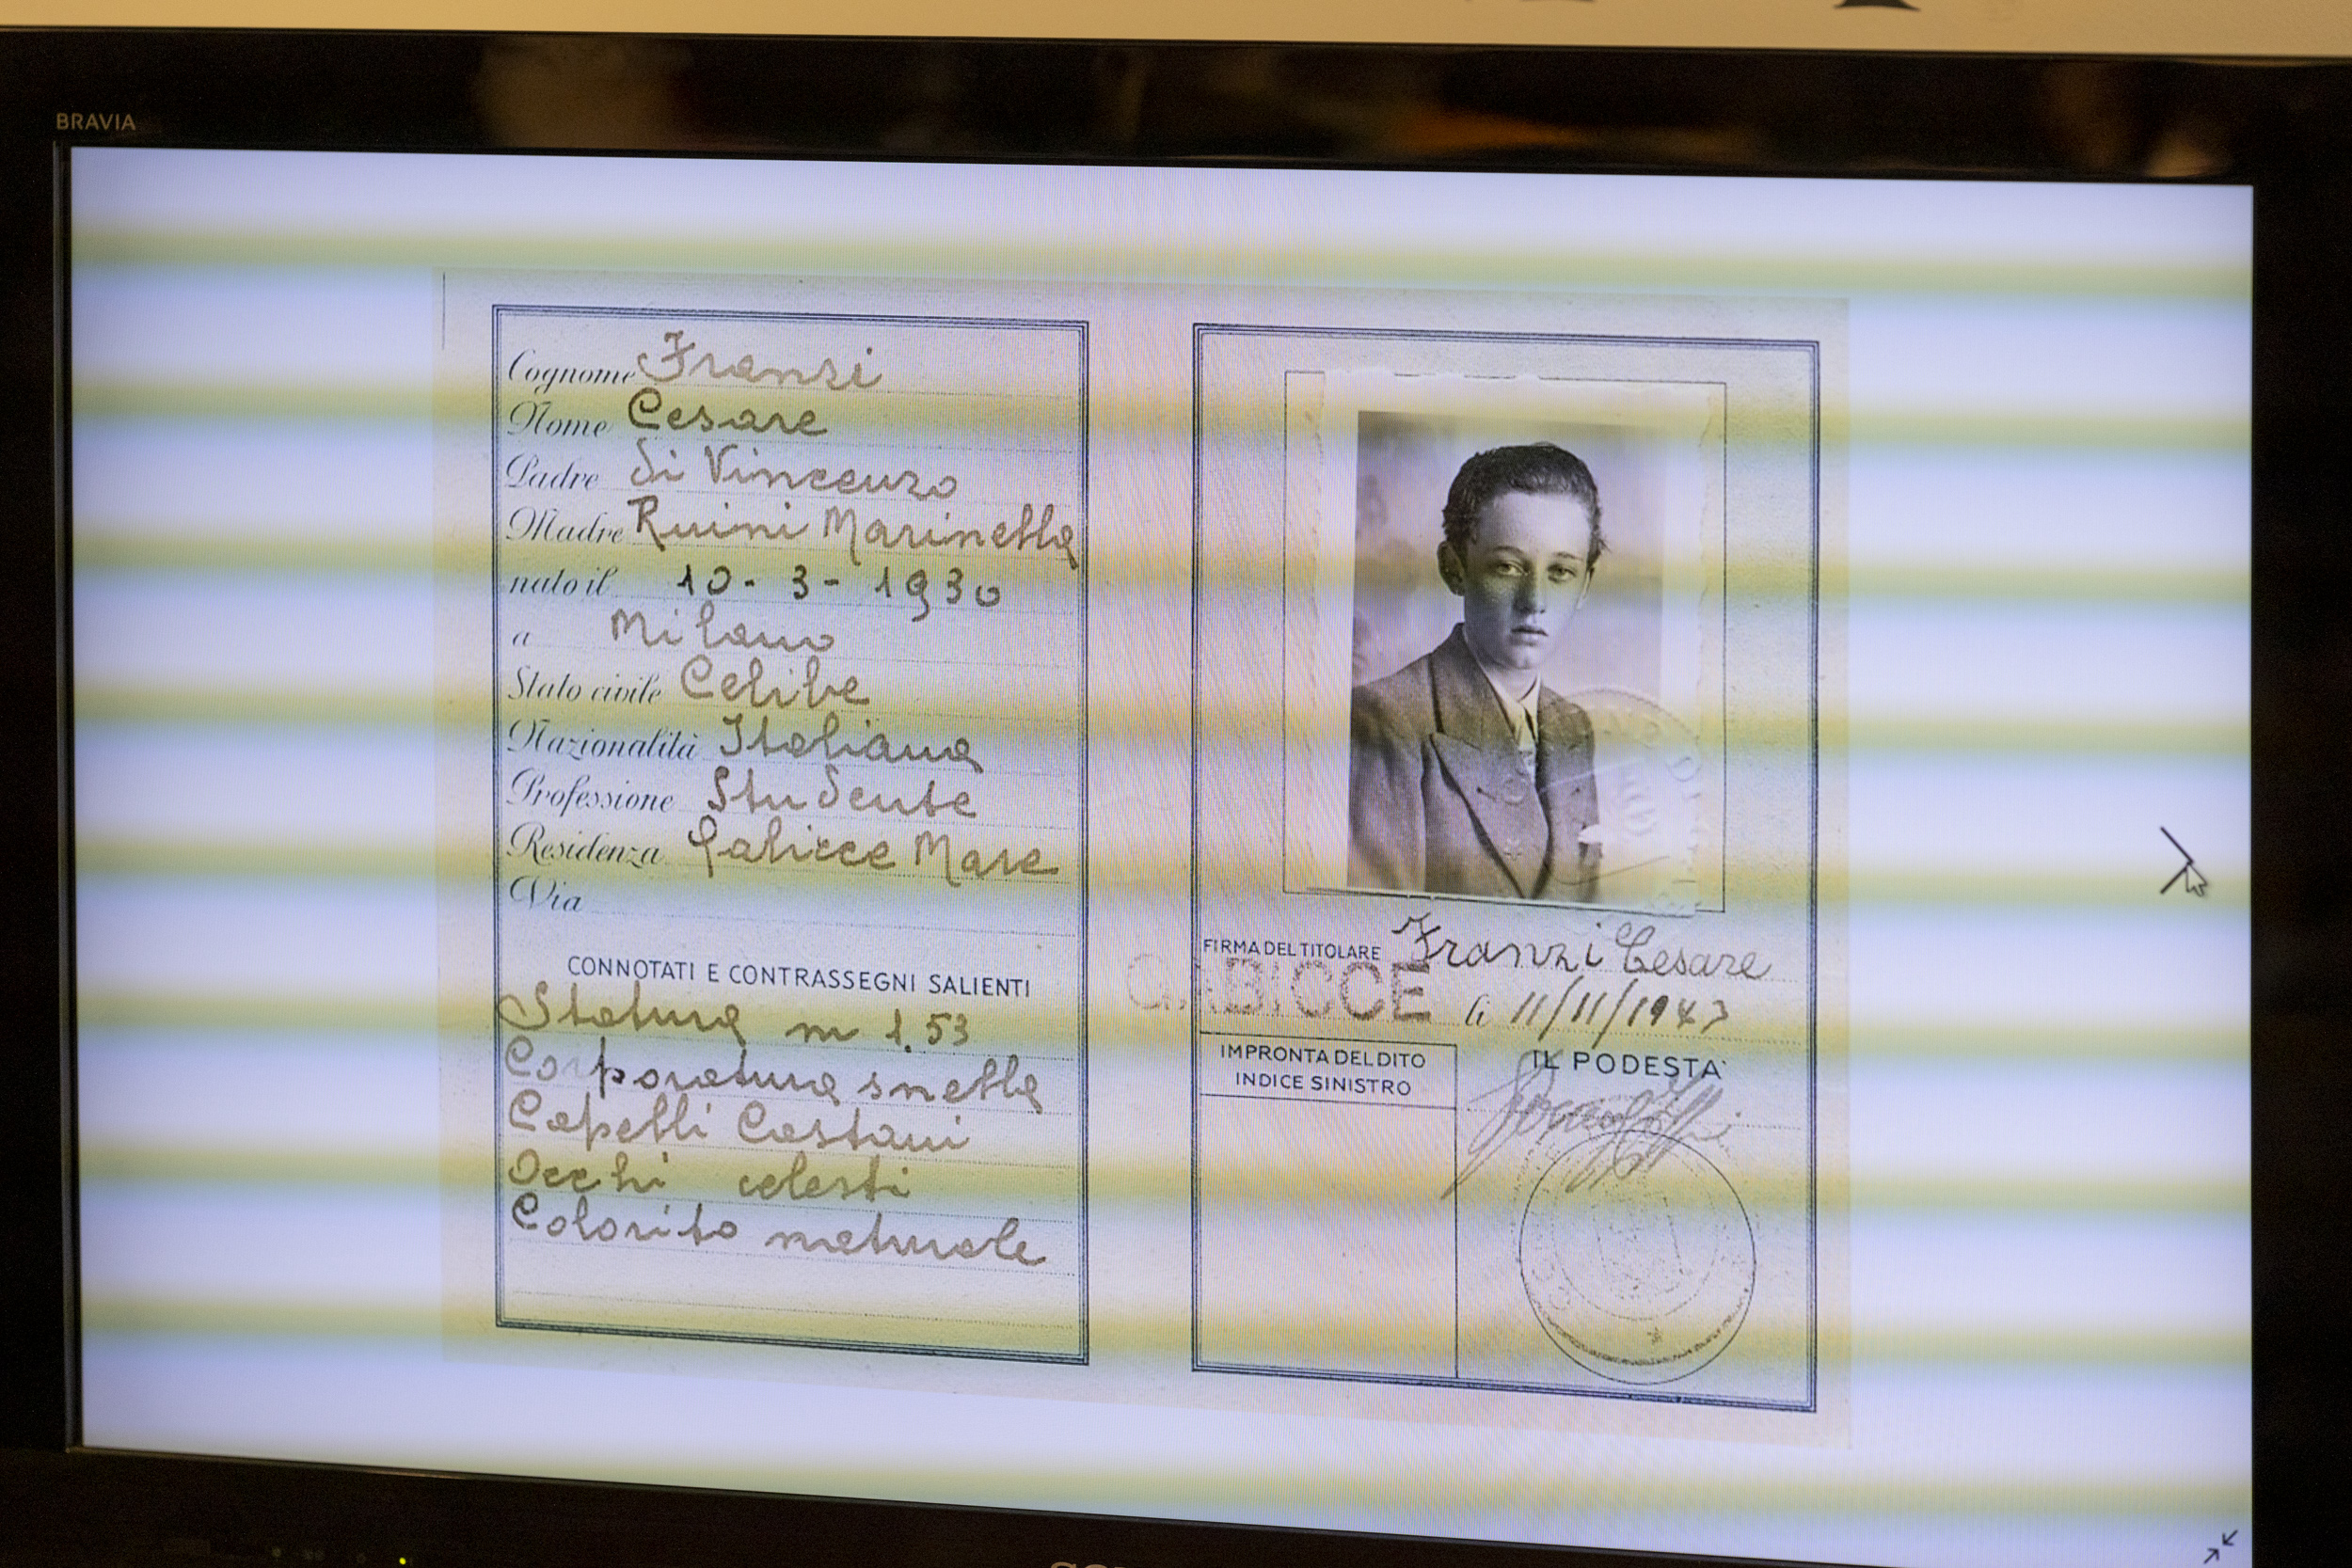 BRAVIA
Cognome Franzi
Nome Cesare
Padre di Vincenzo
Madre Ruini Marinella
nato il 10-3-1930
a Milano
Stato civile Celibe
Nazionalità Italiana
Professione Studente
Residenza Gabicce Mare
Via
CONNOTATI E CONTRASSEGNI SALIENTI
Statura m 1.53
Corporatura snella
Capelli Castani
Occhi celesti
Colorito naturale
FIRMA DEL TITOLARE Franzi Cesare
GABICCE li 11/11/1943
IMPRONTA DEL DITO
INDICE SINISTRO
IL PODESTA'